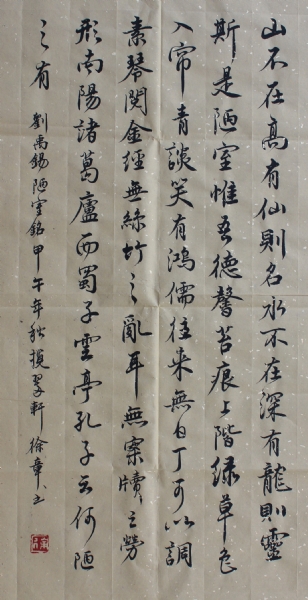 山不在高有仙則名水不在深有龍則靈
斯是陋室惟吾德馨苔痕上階綠草色
入帘青談笑有鴻儒往來無白丁可以調
素琴閱金經無絲竹之亂耳無案牘之勞
形南陽諸葛廬西蜀子雲亭孔子云何陋
之有 劉禹錫陋室銘甲午年秋翠軒徐章